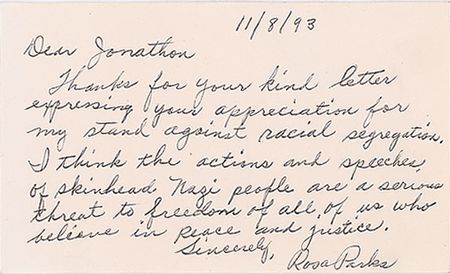 11/8/93
Dear Jonathon
Thanks for your kind letter
expressing your appreciation for
my stand against racial segregation.
I think the actions and speeches,
of skinhead Nazi people are a serious
threat to freedom of all, of us who
believe in peace and justice.
Sincerely,
Rosa Parks